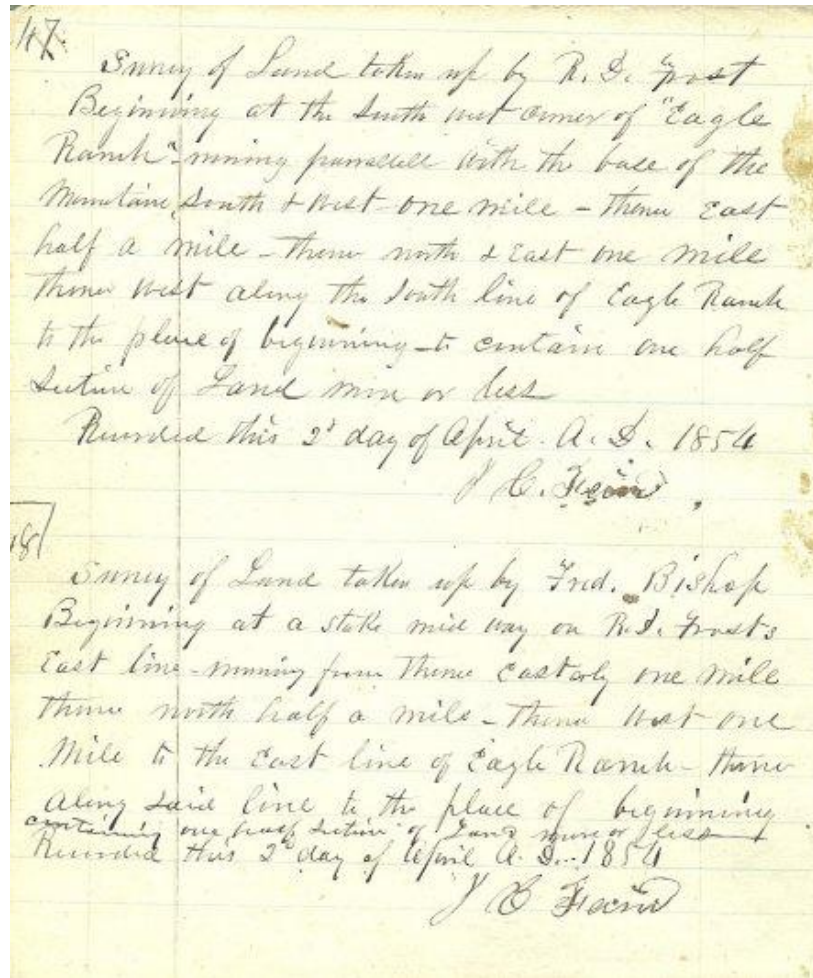 47
Survey of Land taken up by R. D. Frost
Beginning at the South west corner of "Eagle
Ranch" - running parrallell with the base of the
Mountains, South & West one mile - thence East
half a mile - thence north & East one mile
thence West along the South line of Eagle Ranch
to the place of beginning - to contain one half
Section of Land more or less
Recorded this 2d day of April. A. D. 1854
J C.
18
Survey of Land taken up by Fred. Bishop
Beginning at a stake mid way on R. D. Frosts
East line - running from thence easterly one mile
thence north half a mile - thence West one
Mile to the East line of Eagle Ranch - thence
along said line to the place of beginning
containing one half Section of Land more or less
Recorded this 2d day of April A. D. 1854
J C